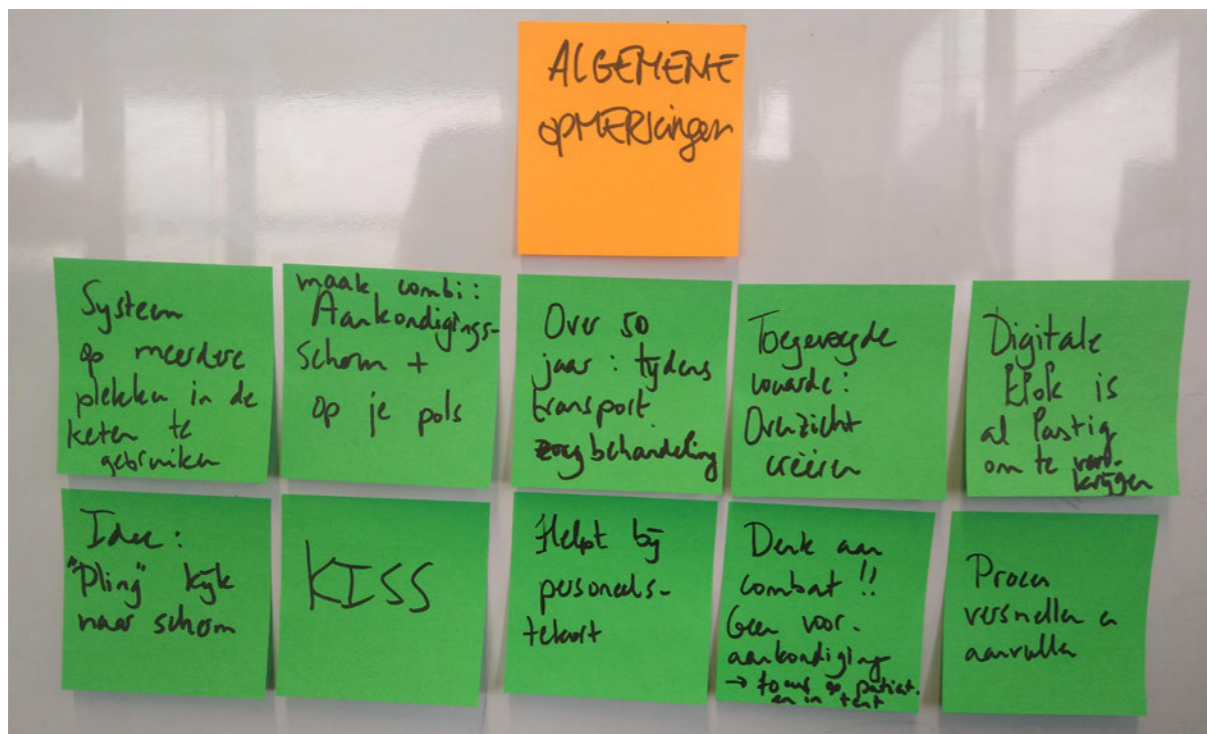 ALGEMENE
opMERKingen
Systeem
op meerdere
plekken in de
keten te
gebruiken
maak combi:
Aankondigings-
scherm +
op je pols
Over 50
jaar: tijdens
transport
zorgbehandeling
Toegevoegde
waarde:
Overzicht
creëren
Digitale
klok is
al lastig
om te ver-
krijgen
Idee:
"Pling" kijk
naar scherm
KISS
Helpt bij
personeels-
tekort
Denk aan
combat!!
Geen voor-
aankondiging
→ focus op patiënt
en in tent
Proces
versnellen en
aanvullen